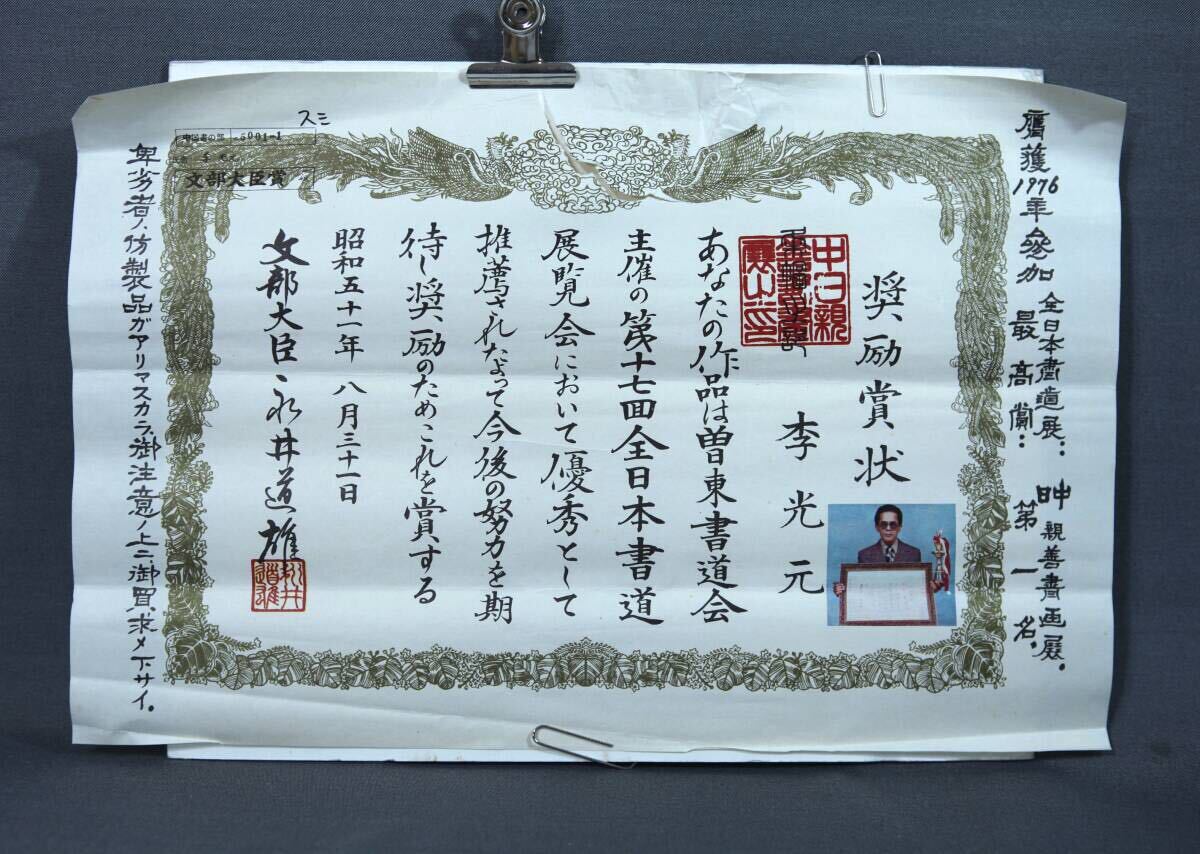 膺獲1976年參加全日本書道展：中日親善書画展．
最高賞：第一名．
奨励賞状
李光元
あなたの作品は曽東書道会
主催の第十七回全日本書道
展覧会において優秀として
推薦されたよって今後の努力を期
待し奨励のためこれを賞する
昭和五十一年八月三十一日
文部大臣永井道雄
スミ
中国書の部 5001-1
文部大臣賞
卑劣者ノ仿製品ガアリマスカラ御注意ノ上ニ御買求メ下サイ。